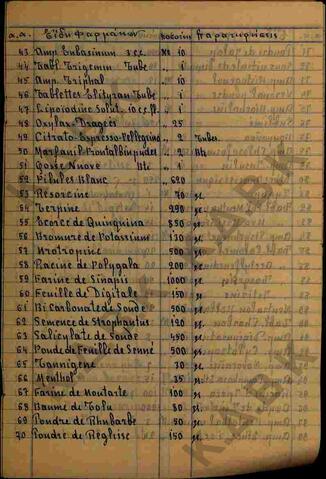 α.α. Εἴδη Φαρμάκων Ποσόν Παρατηρήσεις
43 Amp Embasinum 5 c.c. No 10
44 Tabl Trigemin Tube „ 1
45 Amp. Triphal „ 10
46 Tablettes Elityran Tube „ 1
47 Lipoiodine Solut. 10 c.c. „ 1
48 Oxylax Dragées „ 25
49 Citrato-Espresso-Pellegrino „ 2 Tubes
50 „ 2 Bte
51 Gosse Nuove Bte „ 1
52 Pilules Blanc „ 620
53 Resorcine 70 gr.
54 Terpine 290 gr.
55 Ecorce de Quinquina 850 gr.
56 Bromure de Potassium 130 gr.
57 Urotropine 500 gr.
58 Racine de Polygala 200 gr.
59 Farine de Sinapis 1000 gr.
60 Feuille de Digitale 150 gr.
61 Bi Carbonate de Soude 500 gr.
62 Semence de Strophantus 120 gr.
63 Salicylate de Soude 450 gr.
64 Poudre de Feuille de Senné 500 gr.
65 Tannigene 30 gr.
66 Menthol 25 gr.
67 Farine de Moutarte 100 gr.
68 Baume de Tolu 80 gr.
69 Poudre de Rhubarbe 50 gr.
70 Poudre de Réglise 150 gr.